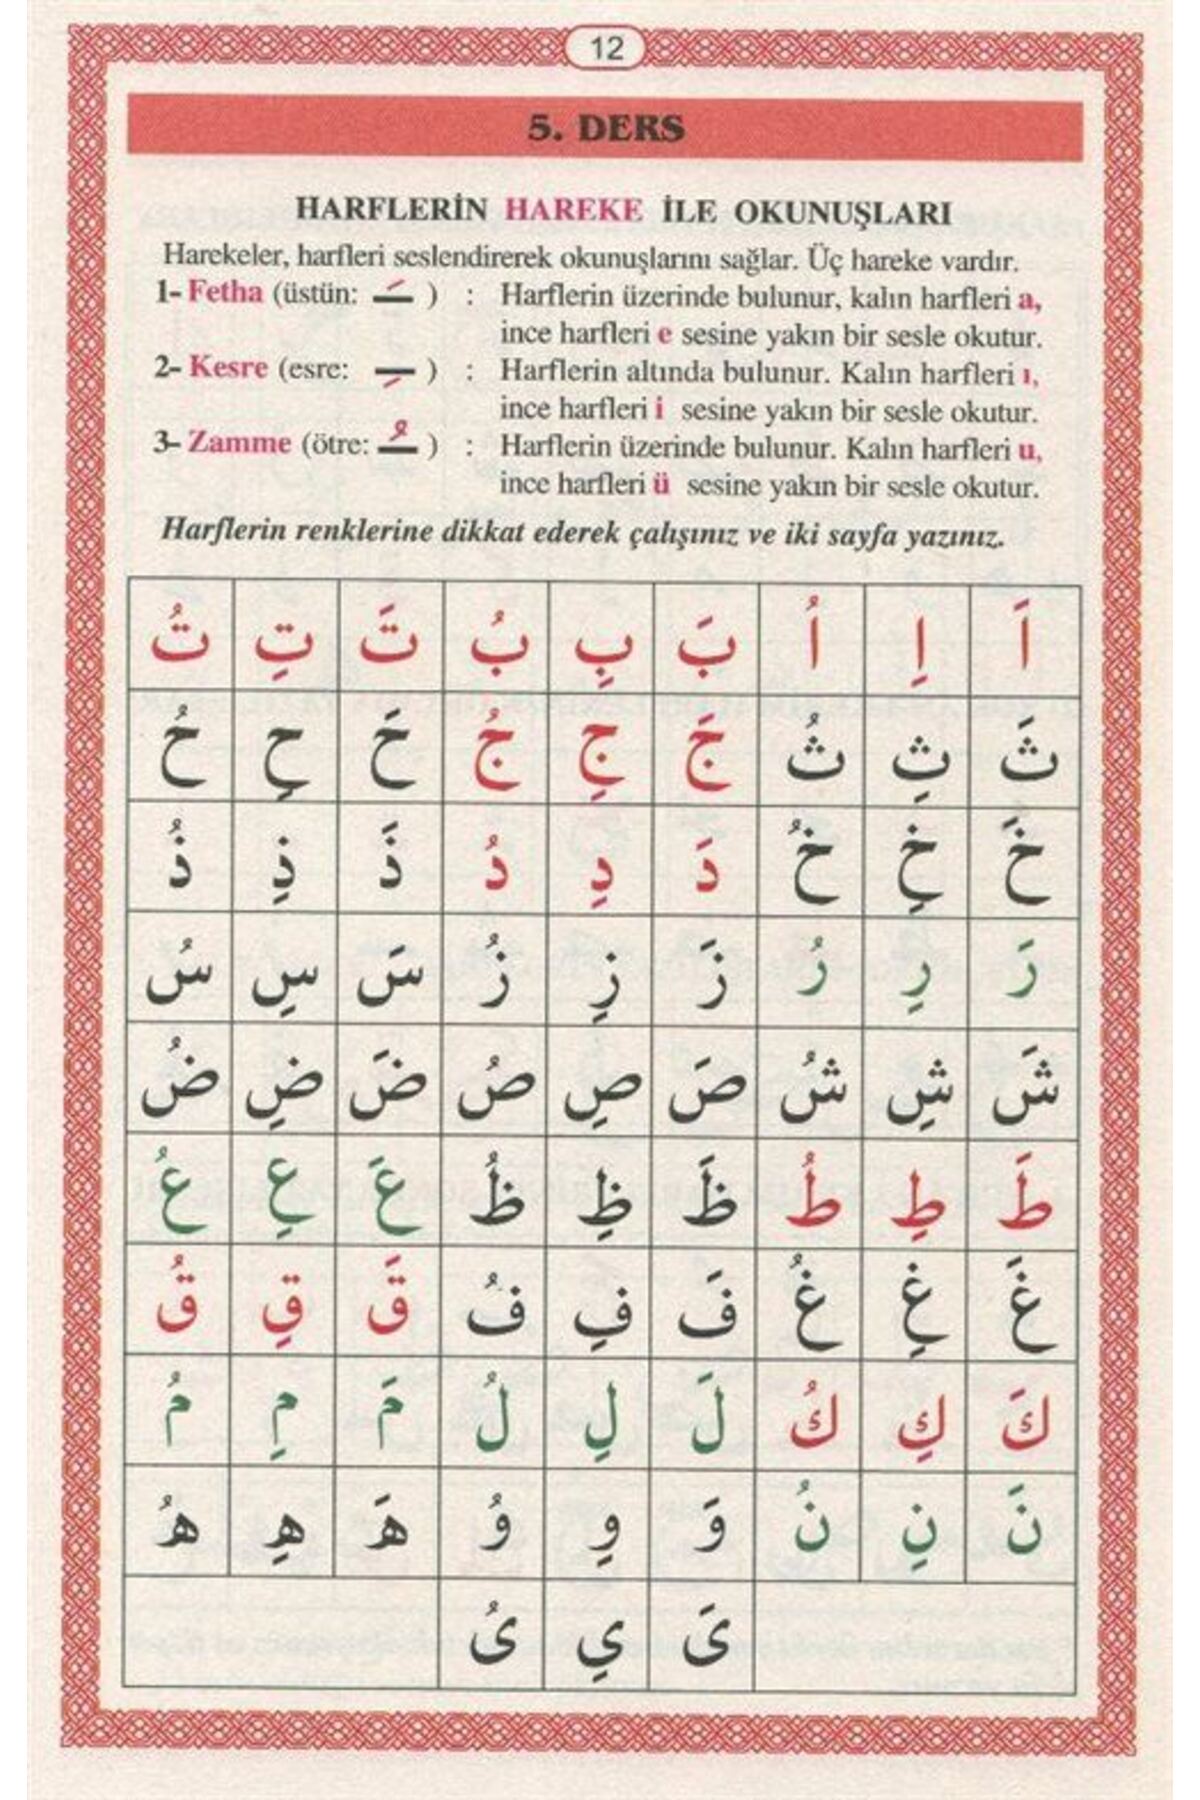 12
5. DERS
HARFLERİN HAREKE İLE OKUNUŞLARI
Harekeler, harfleri seslendirerek okunuşlarını sağlar. Üç hareke vardır.
1- Fetha (üstün: ـَ ) : Harflerin üzerinde bulunur, kalın harfleri a,
ince harfleri e sesine yakın bir sesle okutur.
2- Kesre (esre: ـِ ) : Harflerin altında bulunur. Kalın harfleri ı,
ince harfleri i sesine yakın bir sesle okutur.
3- Zamme (ötre: ـُ ) : Harflerin üzerinde bulunur. Kalın harfleri u,
ince harfleri ü sesine yakın bir sesle okutur.
Harflerin renklerine dikkat ederek çalışınız ve iki sayfa yazınız.
اَ اِ اُ بَ بِ بُ تَ تِ تُ
ثَ ثِ ثُ جَ جِ جُ حَ حِ حُ
خَ خِ خُ دَ دِ دُ ذَ ذِ ذُ
رَ رِ رُ زَ زِ زُ سَ سِ سُ
شَ شِ شُ صَ صِ صُ ضَ ضِ ضُ
طَ طِ طُ ظَ ظِ ظُ عَ عِ عُ
غَ غِ غُ فَ فِ فُ قَ قِ قُ
كَ كِ كُ لَ لِ لُ مَ مِ مُ
نَ نِ نُ وَ وِ وُ هَ هِ هُ
ىَ ىِ ىُ